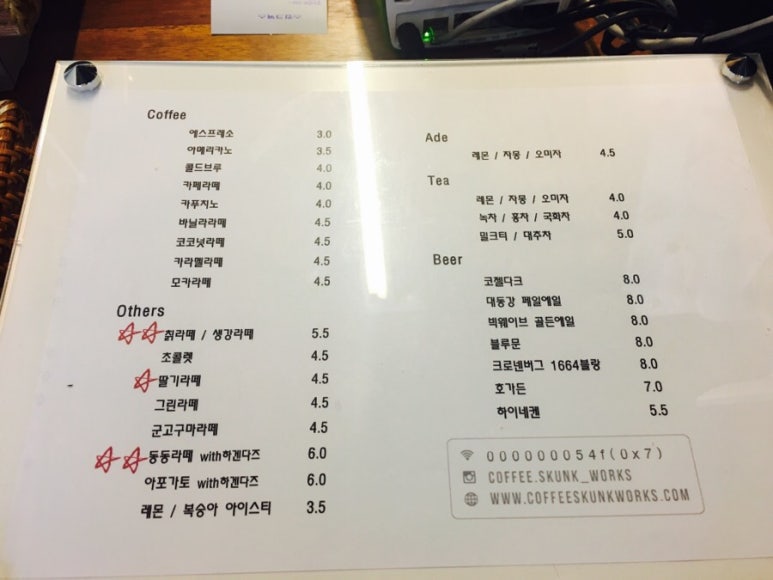 Coffee
에스프레소 3.0
아메리카노 3.5
콜드브루 4.0
카페라떼 4.0
카푸치노 4.0
바닐라라떼 4.5
코코넛라떼 4.5
카라멜라떼 4.5
모카라떼 4.5
Others
칡라떼 / 생강라떼 5.5
초콜렛 4.5
딸기라떼 4.5
그린라떼 4.5
군고구마라떼 4.5
동동라떼 with하겐다즈 6.0
아포가토 with하겐다즈 6.0
레몬 / 복숭아 아이스티 3.5
Ade
레몬 / 자몽 / 오미자 4.5
Tea
레몬 / 자몽 / 오미자 4.0
녹차 / 홍차 / 국화차 4.0
밀크티 / 대추차 5.0
Beer
코젤다크 8.0
대동강 페일에일 8.0
빅웨이브 골든에일 8.0
블루문 8.0
크로넨버그 1664블랑 8.0
호가든 7.0
하이네켄 5.5
000000054f(0x7)
COFFEE.SKUNK_WORKS
WWW.COFFEESKUNKWORKS.COM